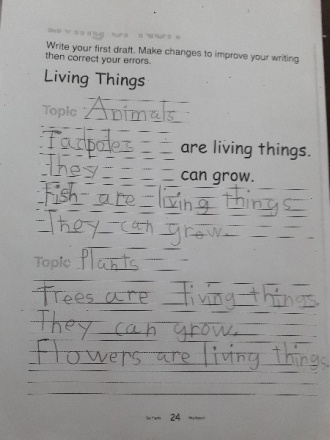 Write your first draft. Make changes to improve your writing
then correct your errors.
Living Things
Topic Animals
Tadpoles are living things.
They can grow.
Fish are living things
They can grow.
Topic Plants
Trees are living things.
They can grow.
Flowers are living things
24